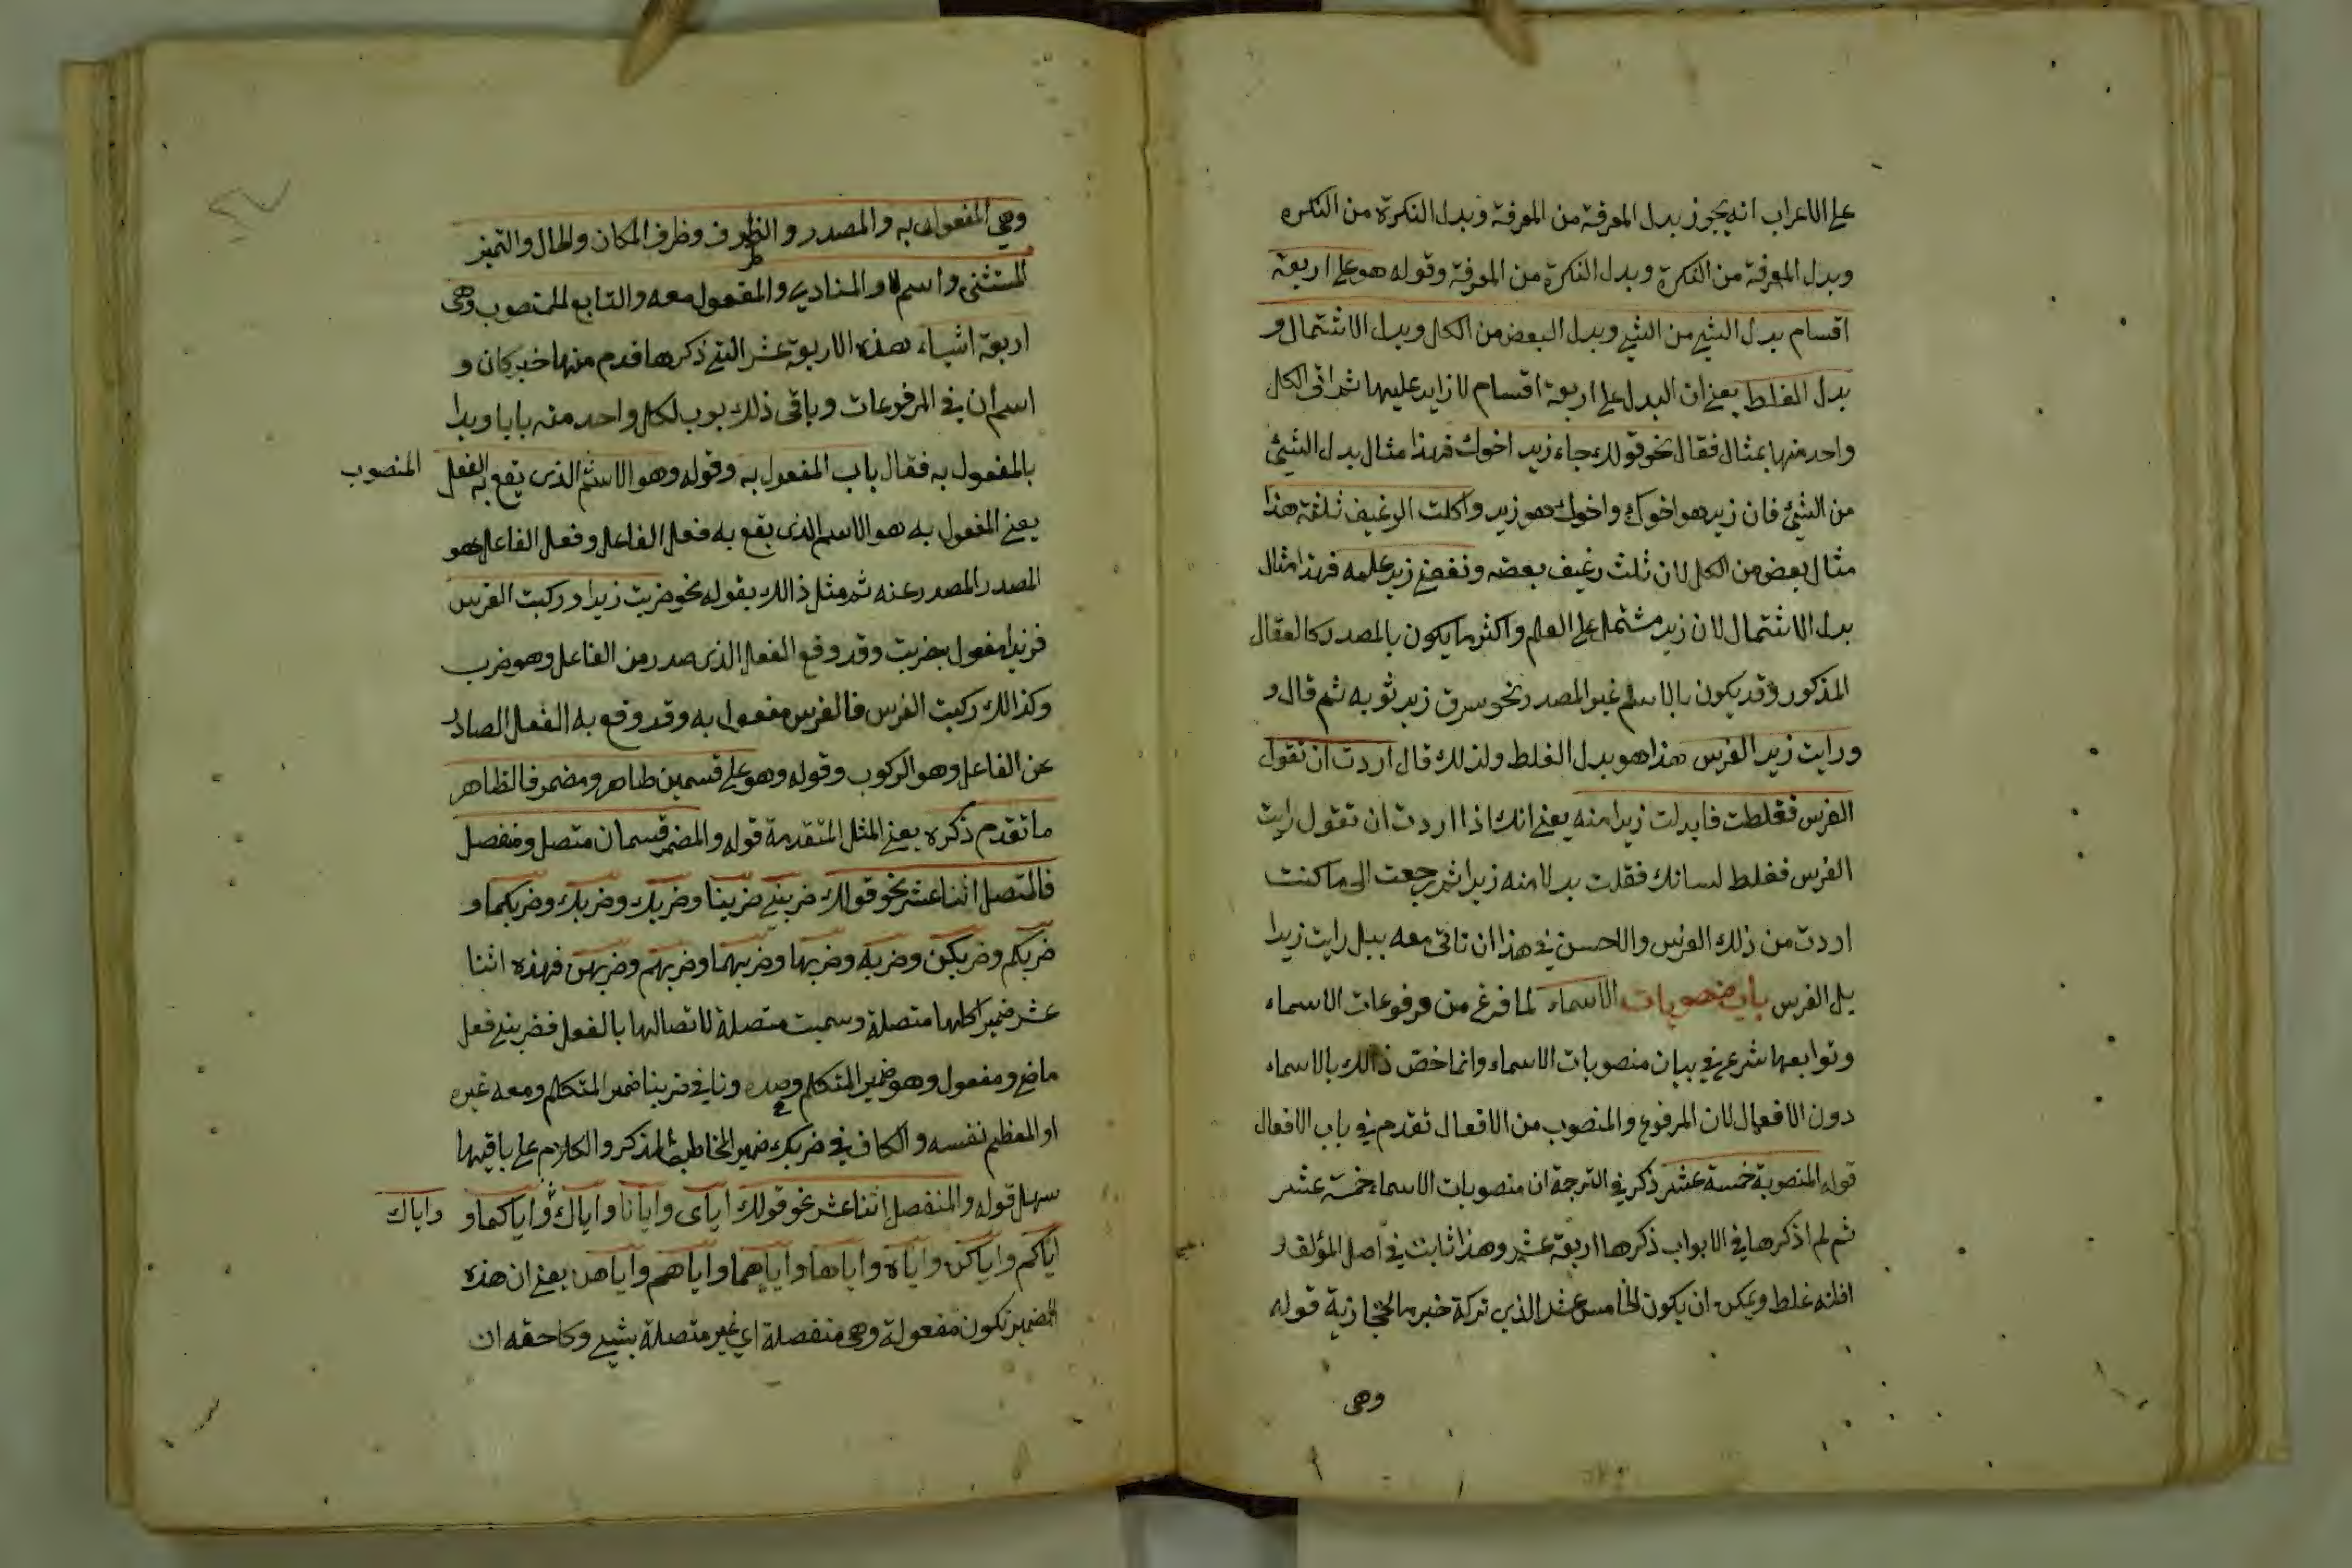 على الاعراب انه يجوز بدل المعرفة من المعرفة وبدل النكرة من النكره
وبدل المعرفة من النكرة وبدل النكرة من المعرفة وقوله هو على اربعة
اقسام بدل الشيء من الشيء وبدل البعض من الكل وبدل الاشتمال و
بدل الغلط يعني ان البدل على اربعة اقسام لا زايد عليها ثم اتى لكل
واحد منها بمثال فقال نحو قولك جاء زيد اخوك فهذا مثال بدل الشيئ
من الشيئ فان زيد هو اخوك واخوك هو زيد واكلت الرغيف ثلثه هذا
مثال بعض من الكل لان ثلث رغيف بعضه ونفعني زيد علمه فهذا مثال
بدل الاشتمال لان زيد مشتمل على العلم واكثر ما يكون بالمصدر كالمقال
المذكور وقد يكون بالاسم غير المصدر نحو سرق زيد ثوبه ثم قال و
ورايت زيد الفرس هذا هو بدل الغلط ولذلك قال اردت ان تقول
الفرس فغلطت فابدلت زيدا منه يعني انك اذا اردت ان تقول رايت
الفرس فغلط لسانك فقلت بدلا منه زيدا ثم رجعت الى ما كنت
اردت من ذلك الفرس والاحسن في هذا ان تاتي معه ببل رايت زيدا
بل الفرس باب منصوبات الاسماء لما فرغ من مرفوعات الاسماء
وتوابعها شرع في بيان منصوبات الاسماء وانما خص ذالك بالاسماء
دون الافعال لان المرفوع والمنصوب من الافعال تقدم في باب الافعال
قوله المنصوبة خمسة عشر ذكر في الترجمة ان منصوبات الاسماء خمسة عشر
ثم لم اذكرها في الابواب ذكرها اربعة عشر وهذا ثابت في اصل المؤلف و
اظنه غلط ويمكن ان يكون الخامس عشر الذي تركة خبر ما الحجازية قوله
وهى
وهي المفعول به والمصدر والظرف وظرف المكان والحال والتميز
المستثنى واسم لا والمنادى والمفعول معه والتابع للمنصوب وهى
اربعة اشياء هذه الاربعة عشر التي ذكرها قدم منها خبر كان و
اسم ان في المرفوعات وباقى ذلك بوب لكل واحد منه بابا وبدا
بالمفعول به فقال باب المفعول به وقوله وهو الاسم الذى يقع به الفعل
المنصوب
يعني المفعول به هو الاسم الذى يقع به فعل الفاعل وفعل الفاعل هو
المصدر المصدر عنه ثم مثل ذالك بقوله نحو ضربت زيدا وركبت الفرس
فزيدا مفعول بضربت وقد وقع الفعل الذى صدر من الفاعل وهو ضرب
وكذالك ركبت الفرس فالفرس مفعول به وقد وقع به الفعل الصادر
عن الفاعل وهو الركوب وقوله وهو على قسمين ظاهر ومضمر فالظاهر
ما تقدم ذكره يعني المثل المتقدمة قوله والمضمر قسمان متصل ومنفصل
فالمتصل اثنا عشر نحو قولك ضربني ضربنا وضربك وضربك وضربكما و
ضربكم وضربكن وضربه وضربها وضربهما وضربهم وضربهن فهذه اثنا
عشر ضميرا كلها متصلة وسميت متصلة لاتصالها بالفعل فضربني فعل
ماض ومفعول وهو ضمير المتكلم وحده ونا في ضربنا ضمير المتكلم ومعه غيره
او المعظم نفسه والكاف في ضربك ضمير المخاطب المذكر والكلام على باقيها
سهل قوله والمنفصل اثنا عشر نحو قولك اياى وايانا واياك واياكما و
واياك
اياكم واياكن واياه واياها واياهما واياهم واياهن يعني ان هذه
الضمير تكون مفعولة وهى منفصلة اي غير متصلة بشيء وكا حقه ان